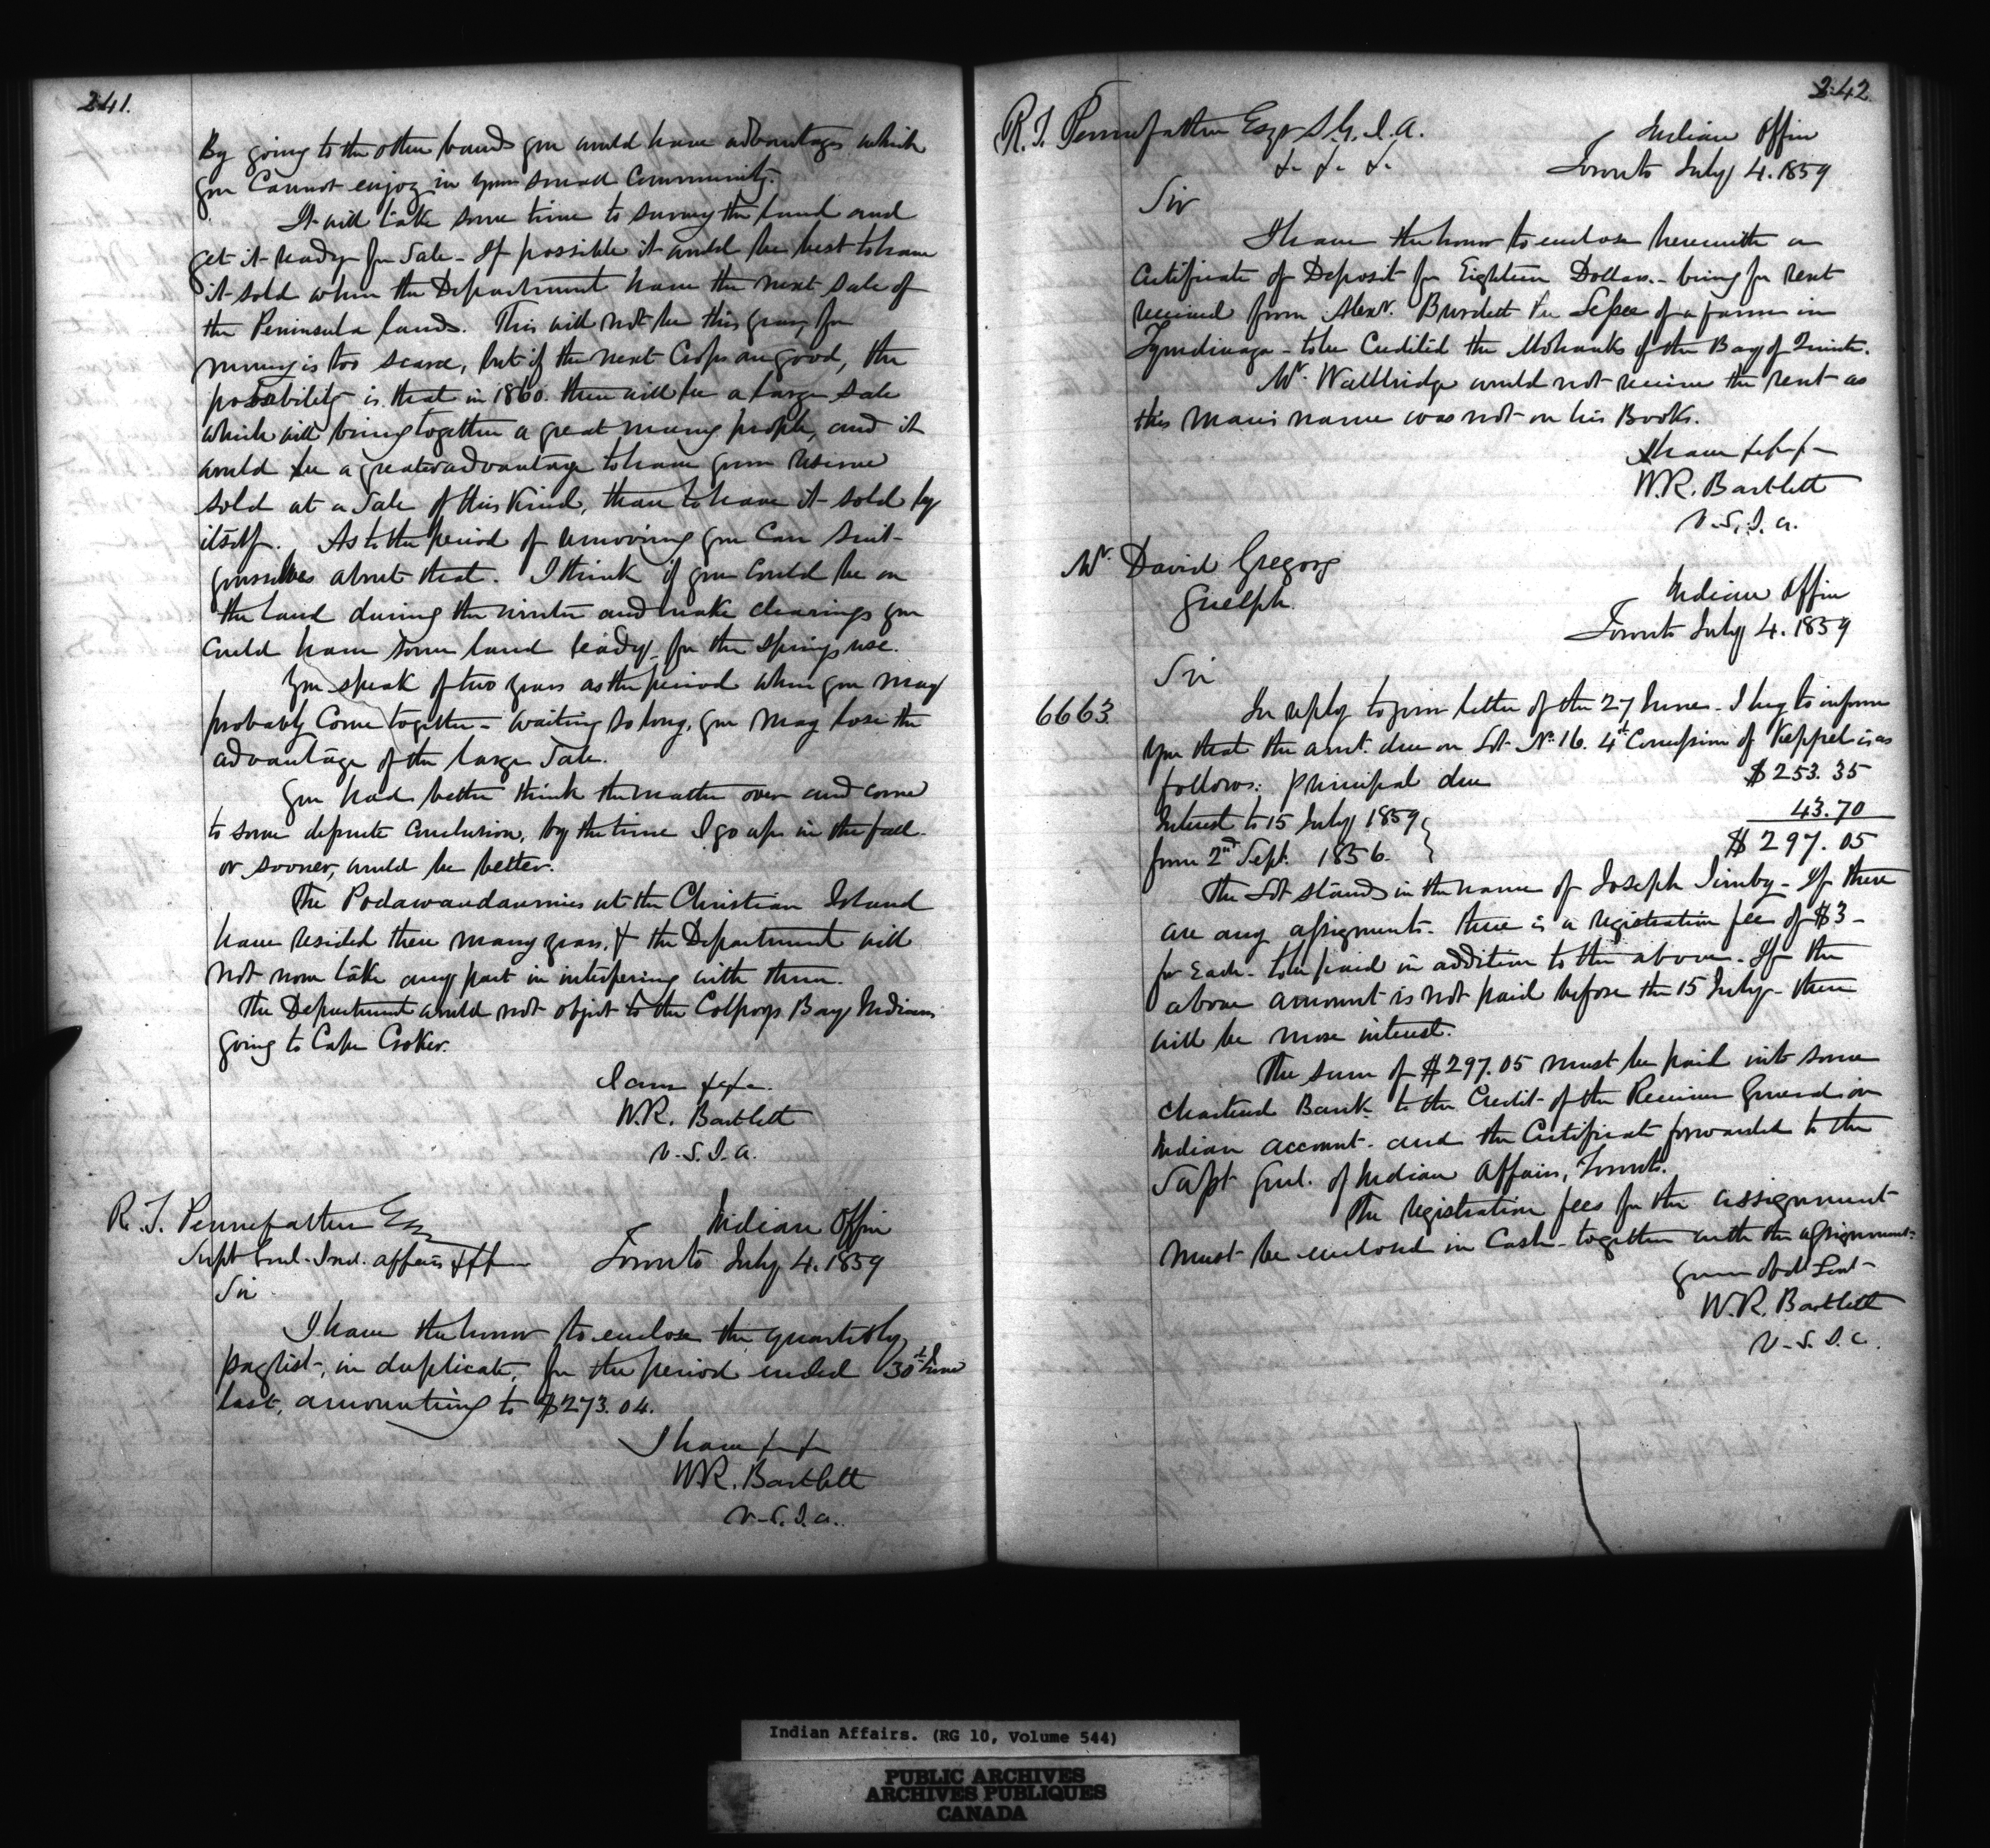 241.
By going to the other bands you would have advantages which
you Cannot enjoy in your small Community.
It will take some time to survey the land and
get it ready for Sale - If possible it would be best to have
it sold when the Department have the next sale of
the Peninsula lands. This will not be this year for
money is too scarce, but if the next Crops are good, the
possibility is that in 1860. there will be a large sale
which will bring together a great many people, and it
would be a greater advantage to have your Reserve
sold at a Sale of this Kind, than to have it sold by
itself. As to the period of removing you Can suit
yourselves about that. I think if you Could be on
the land during the winter and make clearings you
Could have some land ready for the Springs use.
You speak of two years as the period when you may
probably Come together - waiting so long, you may lose the
advantage of the large Sale.
You had better think the matter over and come
to some definite Conclusion, by the time I go up in the fall
or sooner, would be better.
The Podawaudaumies at the Christian Island
have resided there many years, & the Department will
not now take any part in interfering with them.
The Department would not object to the Colpoys Bay Indians
going to Cape Croker.
I am &c &c.
W.R. Bartlett
V.S.I.A.
R. T. Pennefather Esq
Supt Genl. Ind. affairs &c &c
Indian Office
Toronto July 4. 1859
Sir
I have the honor to enclose the quarterly
paylist, in duplicate, for the period ended 30th June
last, amounting to $273.04.
I have &c &c
W.R. Bartlett
V.S.I.A.
242
R. T. Pennefather Esqr S.G.I.A.
&c &c &c
Indian Office
Toronto July 4. 1859
Sir
I have the honor to enclose herewith a
Certificate of Deposit for Eighteen Dollars. - being for rent
received from Alexr. Burdett the Lessee of a farm in
Tyendinaga - to be Credited the Mohawks of the Bay of Quinte.
Mr. Wallbridge would not receive the rent as
this mans name was not on his Books.
I have &c &c
W.R. Bartlett
V.S.I.A.
Mr. David Gregory
Guelph.
Indian Office
Toronto July 4. 1859
Sir
6663
In reply to your letter of the 27 June - I beg to inform
you that the amt. due on Lot No. 16. 4th Concession of Keppel is as
follows: Principal due $253.35
Interest to 15 July 1859 43.70
from 2nd Sept. 1856. $297.05
The Lot stands in the name of Joseph - If there
are any assignments - there is a registration fee of $3 -
for Each - to be paid in addition to the above - If the
above amount is not paid before the 15 July - there
will be more interest.
The sum of $297.05 must be paid into some
Chartered Bank to the Credit of the Receiver General on
Indian account - and the Certificate forwarded to the
Supt Genl. of Indian Affairs, Toronto.
The registration fees for the assignment
must be enclosed in Cash - together with the assignment.
Your Obdt Servt
W.R. Bartlett
V.S.I.A.
Indian Affairs. (RG 10, Volume 544)
PUBLIC ARCHIVES
ARCHIVES PUBLIQUES
CANADA